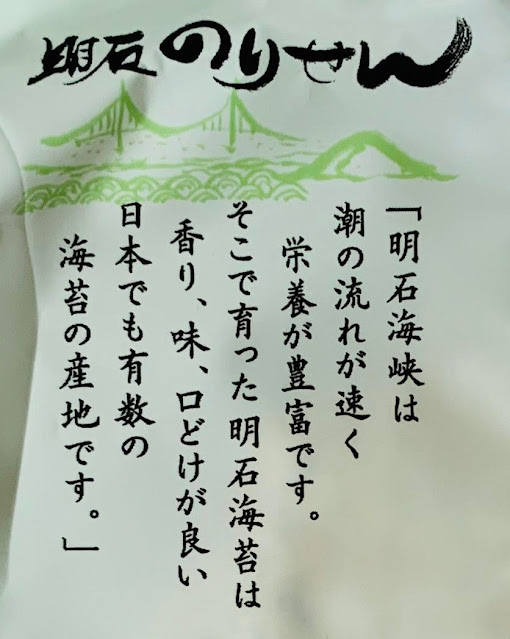 明石のりせん
「明石海峡は
潮の流れが速く
栄養が豊富です。
そこで育った明石海苔は
香り、味、口どけが良い
日本でも有数の
海苔の産地です。」